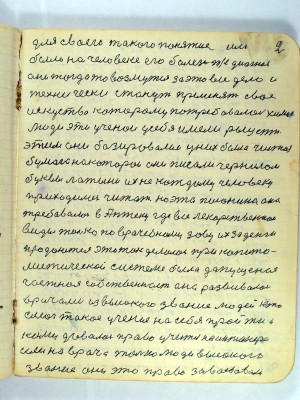 2
для своего такого понятие или
было на человека его болезн т/е диагноз
они тогда то возмутся за это все дело и
технически станут применят свое
искуство которому потребовался химик
люди эти ученои усебя имели
этим они базировалис у них была чистая
бумага на которои они писали чернилом
буквы латыни их не каждому человеку
приходилос читат но эта писанина она
требовалас в Аптеку где все лекарственое
виды толко по врачебному зову их за денги
продаются этот так делалос при капита-
листическои системе была допущеная
частная собственост она развивалас
врачами из высокого звание людеи
смог такое ученья на себя проити
кому давалос право учится
сели на врача толко люди высокого
звание они это право завоевовали